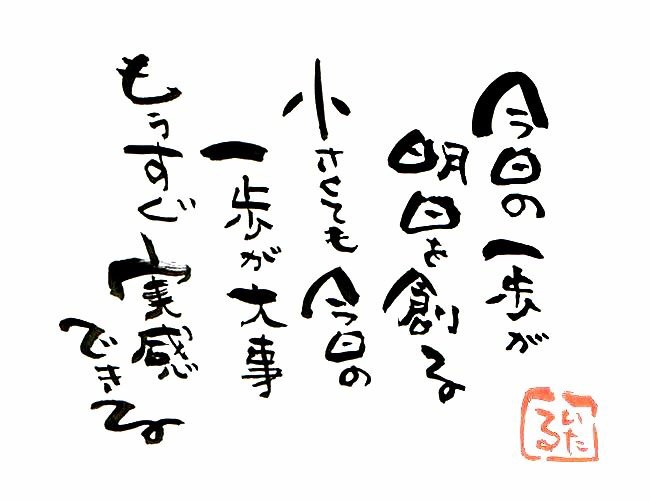 今日の一歩が
明日を創る
小さくても今日の
一歩が大事
もうすぐ実感
できる
いたる